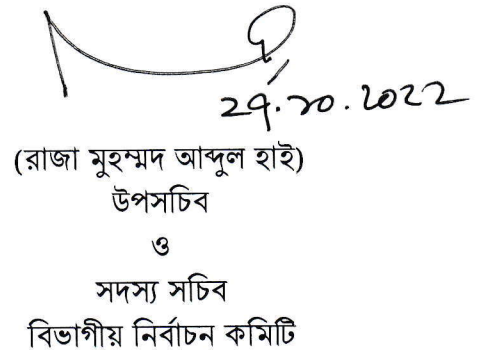 29.10.2022
(রাজা মুহম্মদ আব্দুল হাই)
উপসচিব
ও
সদস্য সচিব
বিভাগীয় নির্বাচন কমিটি